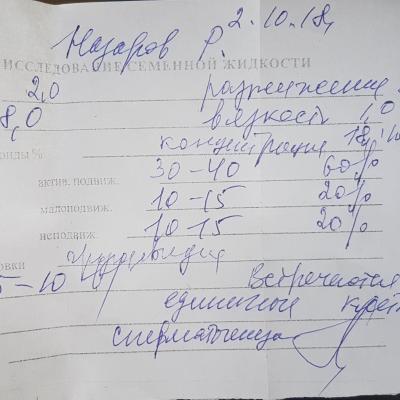 2.10.18,
Назаров Р.
ИССЛЕДОВАНИЕ СЕМЕННОЙ ЖИДКОСТИ
2,0 разжижение
8,0 вязкость 1,0
концентрация 18,0
актив. подвиж. 30-40 60%
малоподвиж. 10-15 20%
неподвиж. 10-15 20%
5-10 встречаются
единичные
сперматогенеза